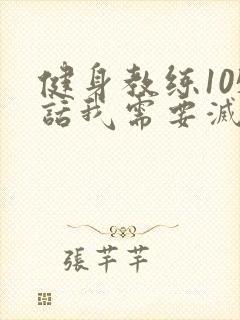 健身教练10
話我需要减
張芊芊